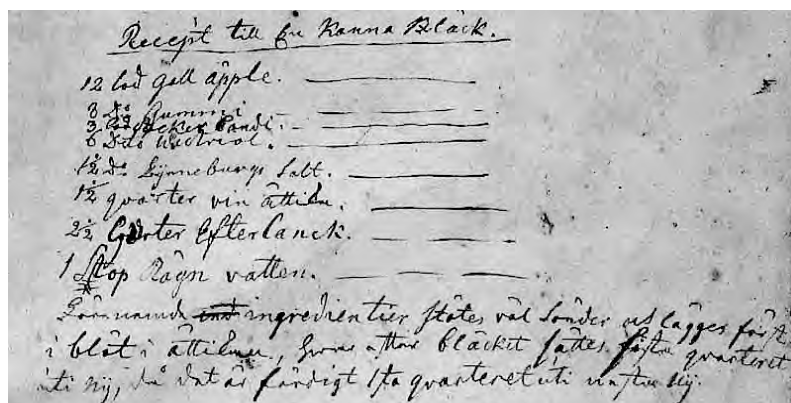 Recept till En Kanna Bläck.
12 lod gall äpple.
8 Do Gummi
3 lod Socker Candi.
6 Victriol.
1½ do. Lyneburgs Salt.
1½ quarter vin ättika.
2½ Efterlanck.
1 Stop Rägn vatten.
ingredientier stötes väl sönder och lägges först
i blöt i ättikan, bläcket sättes första quarteret
uti nÿ, då dat är färdigt 1sta quarteret uti nästa nÿ.